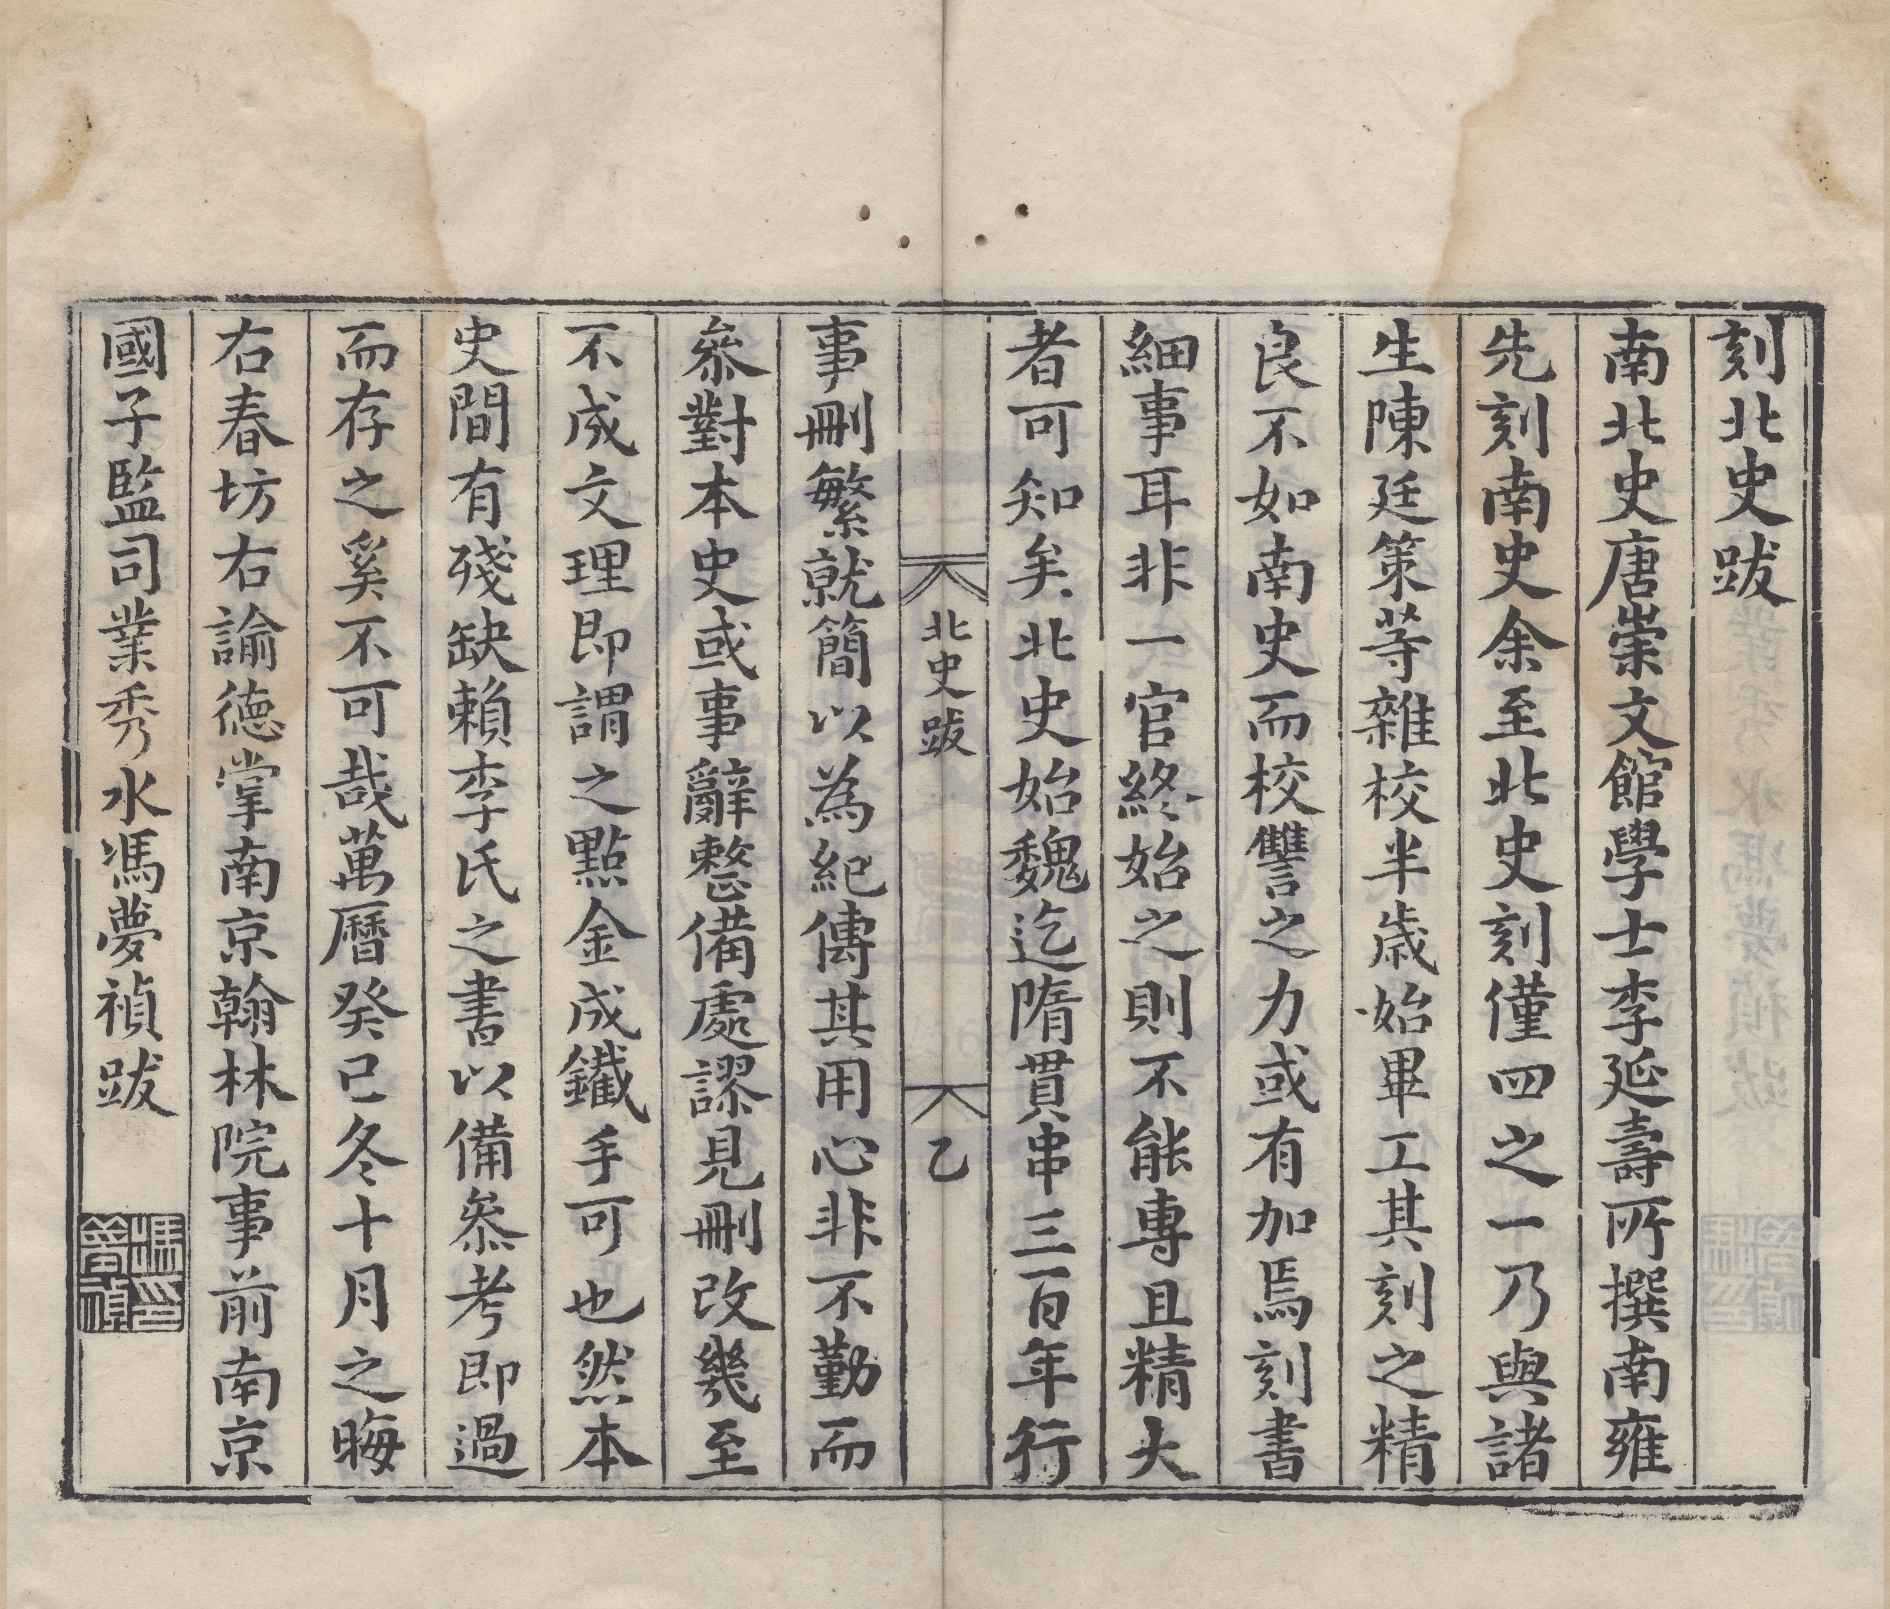 刻北史跋
南北史唐崇文館學士李延壽所撰南雍
先刻南史余至北史刻僅四之一乃與諸
生陳廷策等雜校半歲始畢工其刻之精
良不如南史而校讐之力或有加焉刻書
細事耳非一官終始之則不能專且精大
者可知矣北史始魏迄隋貫串三百年行
北史跋
乙
事刪繁就簡以為紀傳其用心非不勤而
叅對本史或事辭整備處謬見刪改幾至
不成文理即謂之點金成鐵手可也然本
史間有殘缺賴李氏之書以備叅考即過
而存之奚不可哉萬曆癸巳冬十月之晦
右春坊右諭德掌南京翰林院事前南京
國子監司業秀水馮夢禎跋
馮夢禎印